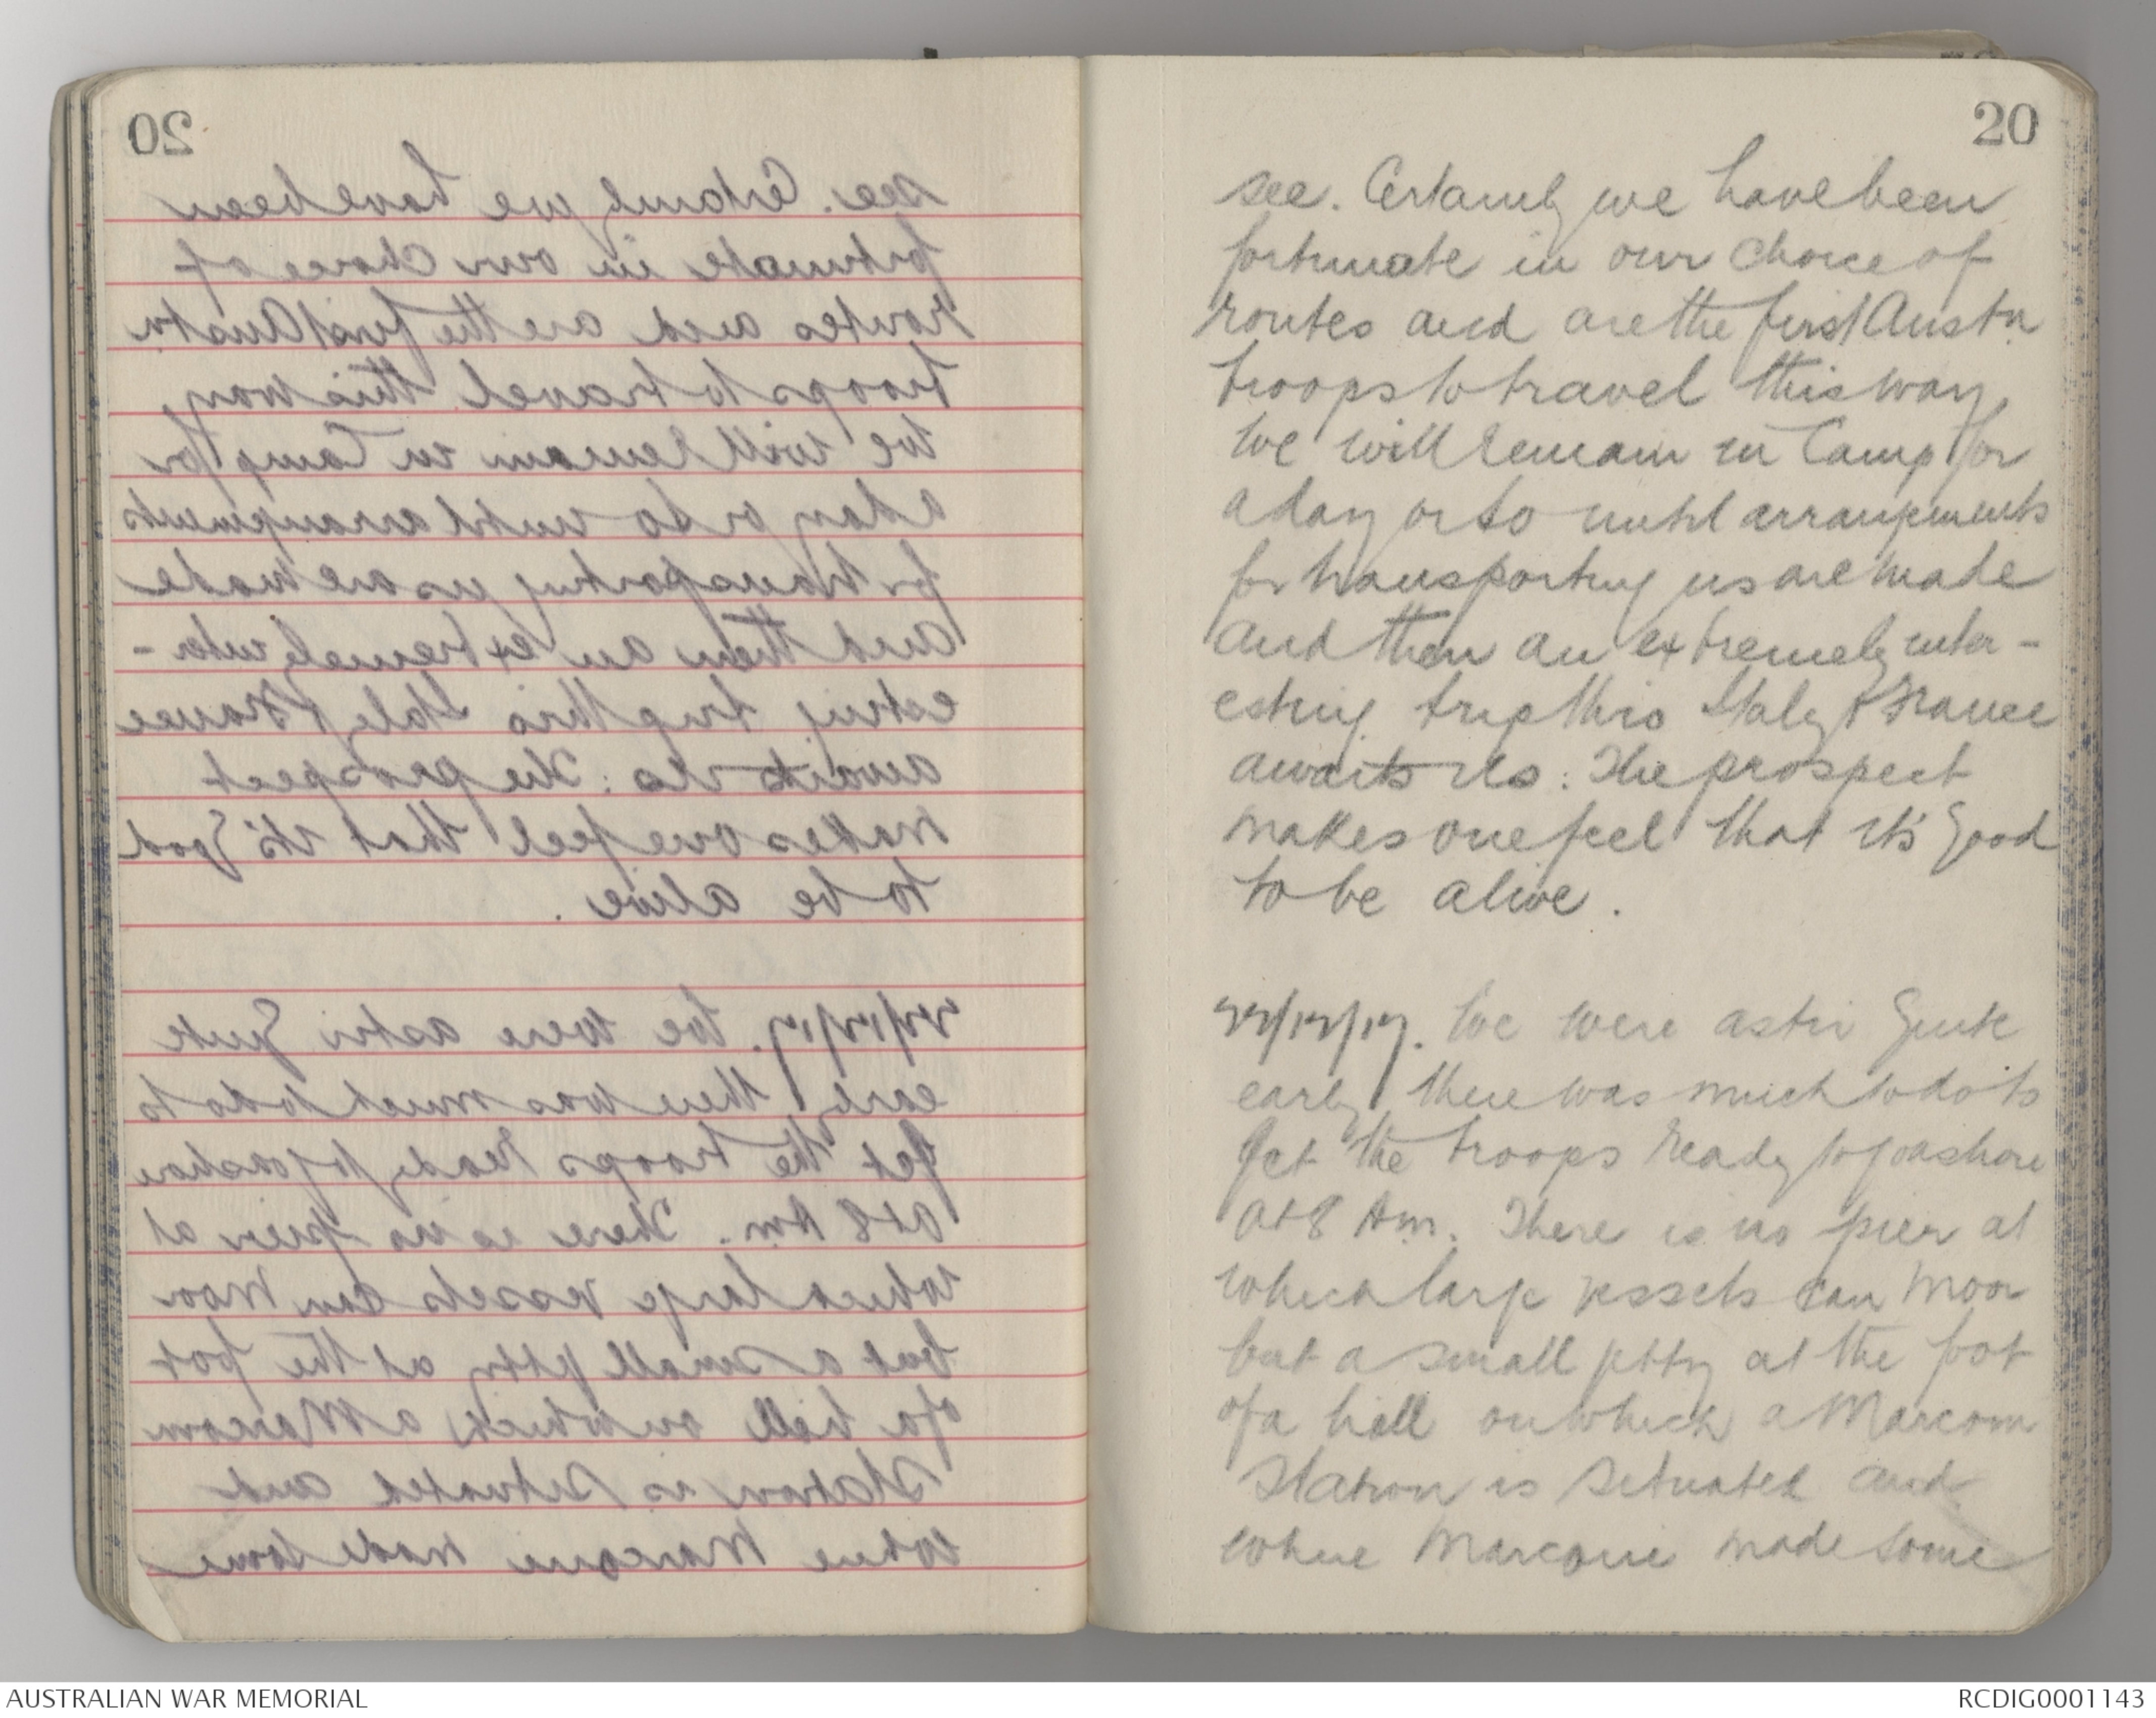 20
see. Certainly we have been
fortunate in our choice of
routes and are the first Austn.
troops to travel this way,
We will remain in Camp for
a day or so until arrangements
for transporting us are made
and then an extremely inter-
esting trip thro Italy & France
awaits us: The prospect
makes one feel that it's good
to be alive.
We were astir Quite
early, there was much to do to
get the troops ready to go ashore
at 8 Am. There is no pier at
which large vessels can moor
but a small jetty at the foot
of a hill on which a Marconi
Station is situated and
where Marconi made some
AUSTRALIAN WAR MEMORIAL
RCDIG0001143